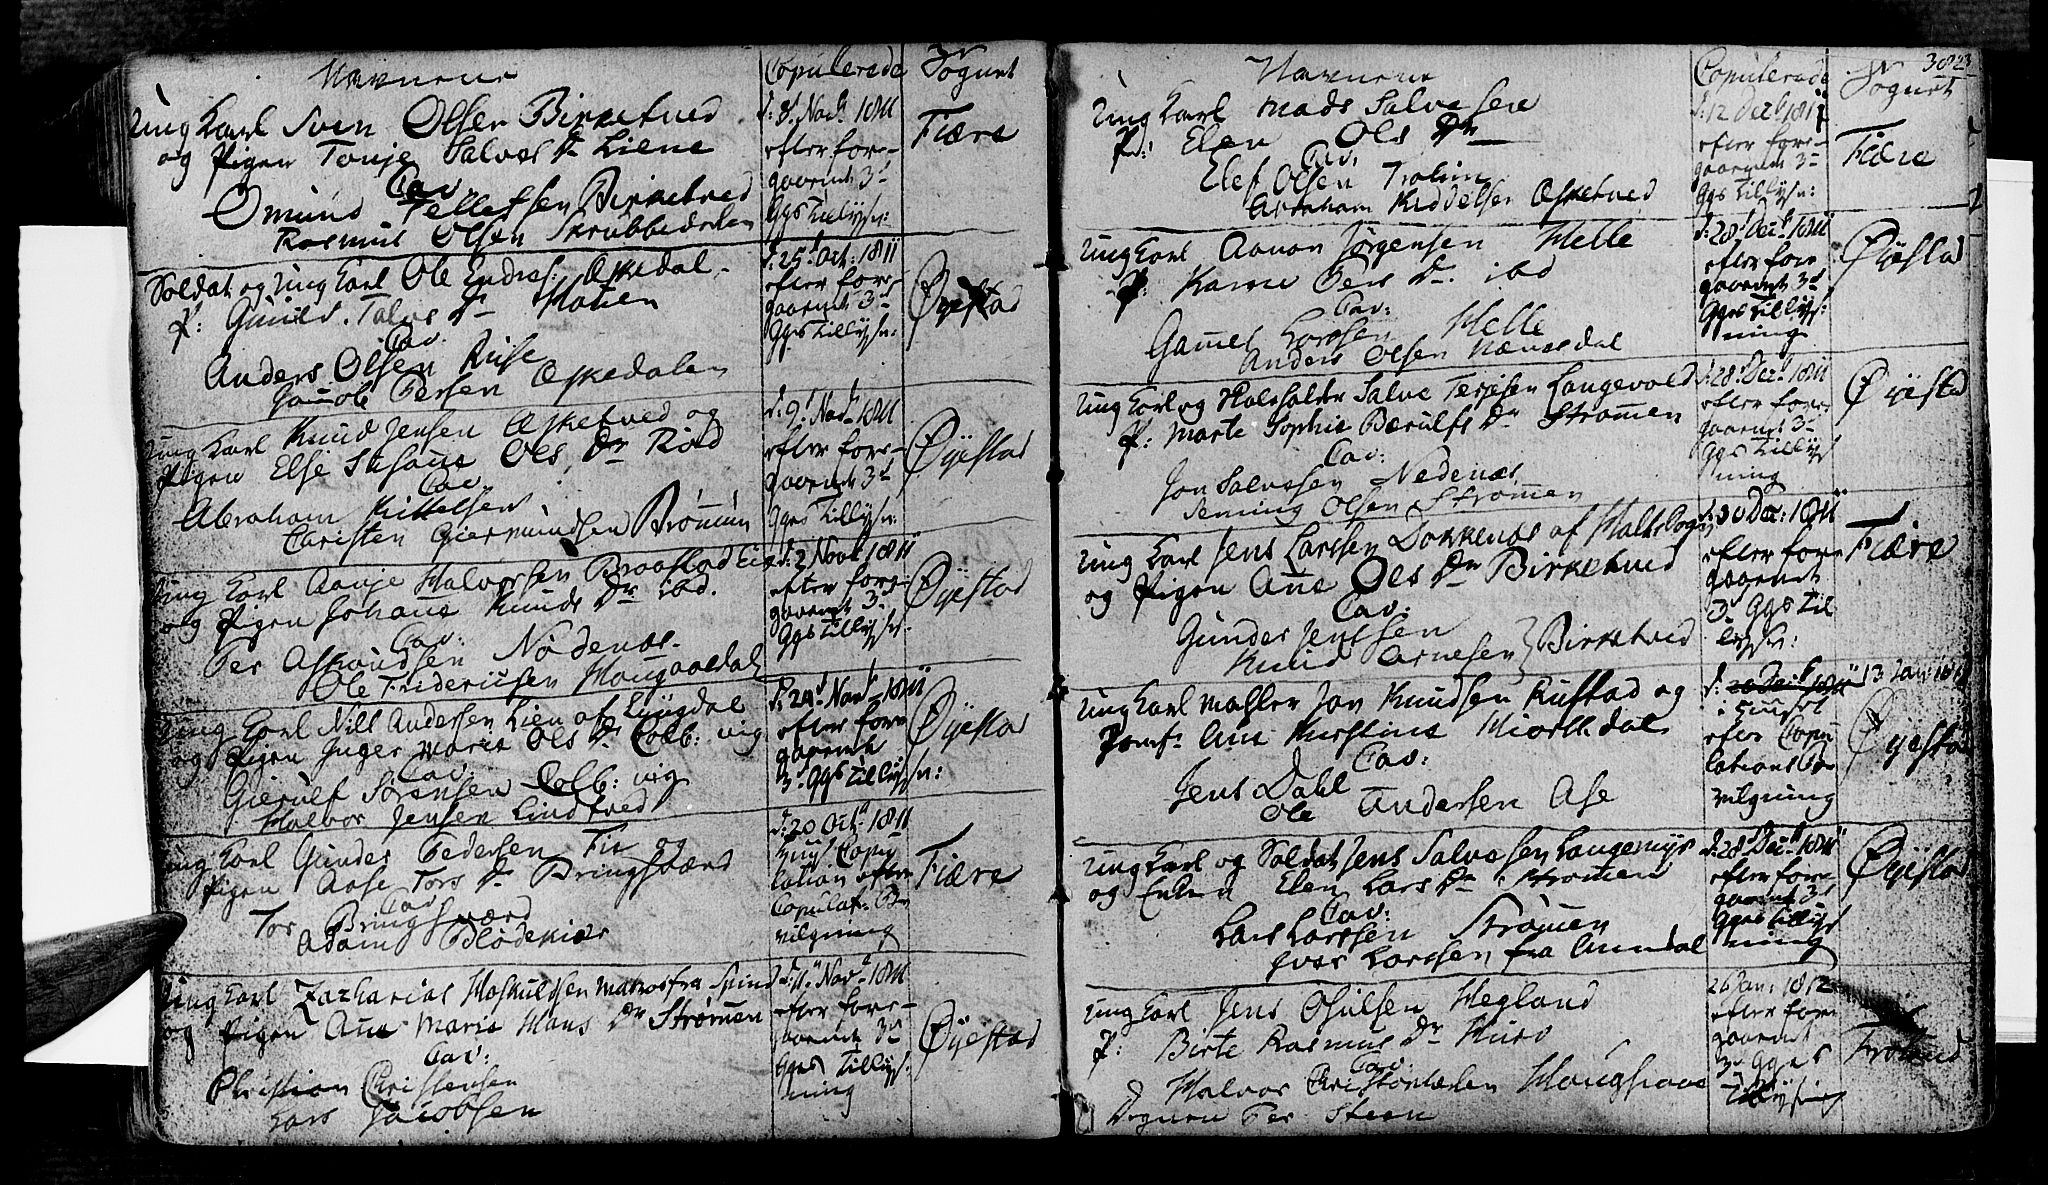 Navnene
Copulerede
Sognet
Ung Karl Sven Olsen Birketved
og Pigen Tonje Salves Dr Liene
Cav
Omund Tellefsen Birketved
Rasmus Olsen Skrubbedalen
d: 8de Novb 1811
efter fore-
gaaende 3de
Ggs Tillysn:
Fiære
Soldat og Ung Karl Ole Endres: Askedal
P: Gunild Talvs Dr
Cav.
Anders Olsen Rise
Jacob Persen Askedalen
d: 25de Oct: 1811
efter fore
gaaende 3de
Ggs Tillysn:
Øyestad
Ung Karl Knud Jensen Asketved og
Pigen Else Susane Ols Dr Röd
Cav
Abraham Kittelsen
Christen Giermundsen Brömun
d: 9de Novb 1811
efter fore-
gaaende 3de
Ggs Tillysn:
Øyestad
Ung Karl Aanje Halvorsen Braastad
og Pigen Johane Knuds Dr ibd.
Cav:
Per Asmundsen Nödenæs
Ole Friderichsen Hougaadal
d: 2 Novb 1811
efter fore
gaaende 3de
Ggs Tillysn.
Øyestad
Ung Karl Nills Andersen Lien af Lyngdal
og Pigen Inger Marie Ols Dr Colb: vig
Cav:
Gierulf Sörensen Colb: vig
Halvor Jensen Lindtved
d: 24de Novb 1811
efter fore
gaaende
3de Ggs Tillysn:
Øyestad
Ung Karl Gunder Pedersen Fie og
Pigen Aase Tors Dr Bringsværd
Cav
Tor Bringsværd
Adam Blödekiær
d: 20 Octb 1811
Copu
lation efter
Copulat: Be
vilgning
Fiære
Ung Karl Zacharias Hoskuldsen matros fra Spind
og Pigen Ane Marie Hans Dr Strömen
Cav:
Christian Christensen
Lars Jacobsen
d: 1 Novb 1811
efter fore-
gaaende 3de
Ggs Tillys-
ning
Øyestad
Navnene
Copulerede
Sognet
Ung Karl Mads Salvesen
P: Elen Ols Dr
Cav.
Elef Olsen Trolim
Abraham Kiddelsen Asketved
d: 12 Decb 1811
efter fore-
gaaende 3de
Ggs Tillysn:
Fiære
Ung Karl Aanon Jörgensen Helle
P: Karen Pers Dr ibd
Cav:
Gamel Larssen Helle
Anders Olsen Nævesdal
d: 28de Decb: 1811
efter fore
gaaende 3de
Ggs Tillys:
ning
Øyestad
Ung Karl og Huusholder Salve Terjesen Langevold
P: Marte Sophie Berulfs Dr Strömen
Cav:
Jon Salvesen Nedenæs
Jenning Olsen Strömen
d: 28de Decb: 1811
efter fore-
gaaende 3de
Ggs Tillys
ning
Øyestad
Ung Karl Jens Larssen Dokkenæs af Holts Sogn
og Pigen Ane Ols Dr Birketved
Cav:
Gunder Jenssen
Knud Arnesen } Birketved
d: 30 Dec: 1811
efter fore
gaaende
3de Ggs Til
lysn:
Fiære
Ung Karl Mahler Jan Knudsen Rustad og
Jomf: Ane Kirstine Hiortsdal
Cav:
Jens Dahl
Ole Andersen Ase
13 Jan: 1812
i Huset
efter Copu
lations Be
vilgning
Øyestad
Ung Karl og Soldat Jens Salvesen Langemyr
og Enken Elen Lars Dr Strömen
Cav:
Lars Larssen Strömen
Iver Larssen fra Arendal
d: 28 Decb: 1811
efter fore
gaaende 3de
Ggs Tillys
ning
Øyestad
Ung Karl Jens Osulsen Hegland
P: Birte Rasmus Dr Hurv
Cav:
Halvor Christensen Hougsaae
Degnen Per Steen
26 Jan: 1812
efter fore
gaaende
3de Gges
Tillysning
Froland